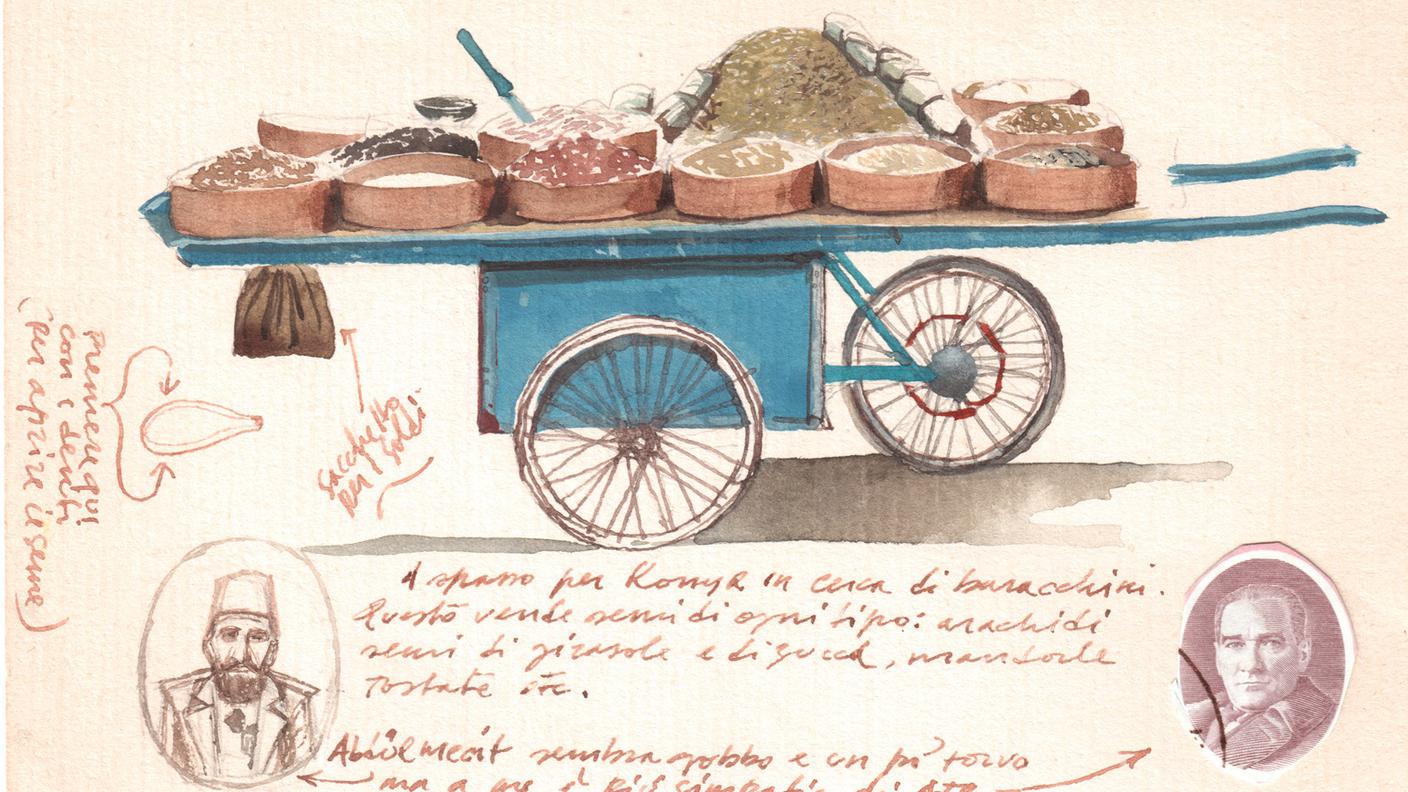 premere qui
con i denti
(per aprire il seme)
sacchetto
per i
soldi
A spasso per Konya in cerca di baracchini.
Questo vende semi di ogni tipo: arachidi
semi di girasole e di zucca, mandorle
tostate etc.
Abdülmecit sembra gobbo e un po' torvo
ma a me è più simpatico di